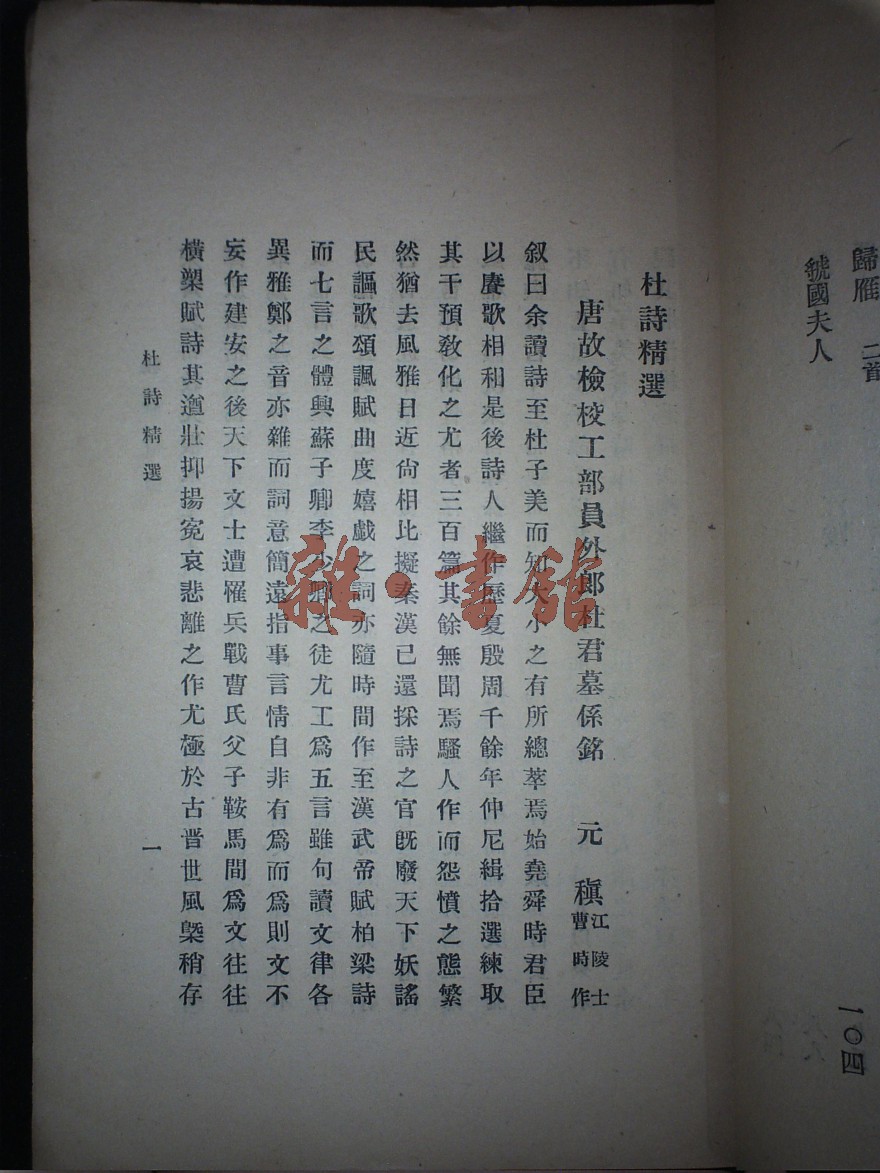 歸雁 二首
虢國夫人
一〇四
杜詩精選
唐故檢校工部員外郎杜君墓係銘 元稹 江陵士曹時作
叙曰余讀詩至杜子美而知大小之有所總萃焉始堯舜時君臣
以賡歌相和是後詩人繼作歷夏殷周千餘年仲尼緝拾選練取
其干預敎化之尤者三百篇其餘無聞焉騷人作而怨憤之態繁
然猶去風雅日近尙相比擬秦漢已還採詩之官旣廢天下妖謠
民謳歌頌諷賦曲度嬉戲之詞亦隨時間作至漢武帝賦柏梁詩
而七言之體興蘇子卿李少卿之徒尤工爲五言雖句讀文律各
異雅鄭之音亦雜而詞意簡遠指事言情自非有爲而爲則文不
妄作建安之後天下文士遭罹兵戰曹氏父子鞍馬間爲文往往
橫槊賦詩其遒壯抑揚寃哀悲離之作尤極於古晋世風槩稍存
杜詩精選
一
雜·書館